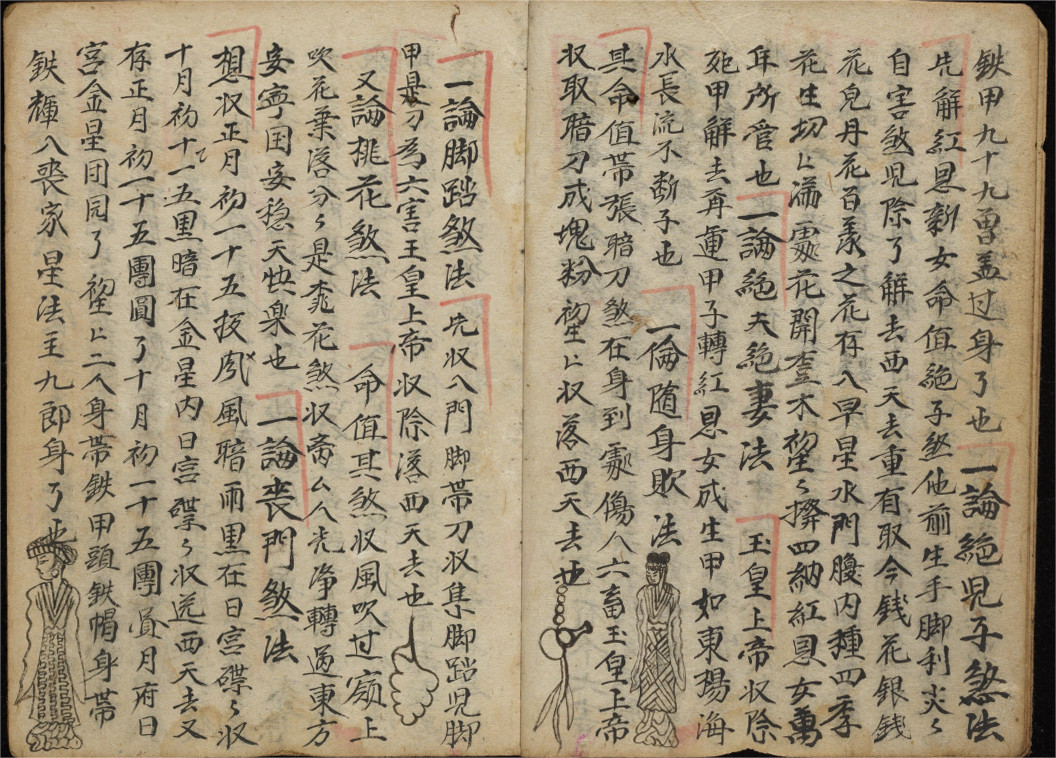 鉄甲九十九曽盖过身了也 一論絶児子煞法
先解紅恩新女命值絶子煞他前生手脚利尖〻
自害煞児除了解去西天去重有取今銭花銀銭
花兒丹花百羕之花存八早星水門腹内種四季
花生切〻满處花開杢木〻擠四納紅恩女萬
年所管也 一論絶夫絶妻法 玉皇上帝収除
死甲解去再運甲子轉紅恩女成生甲如東陽海
水長流不断子也 一倫随身敗法
其命值帯張暗刀煞在身到處傷人六畜玉皇上帝
収取暗刀成塊粉〻収落西天去也
一論脚踏煞法 先収八門脚帯刀収集脚踏児脚
甲是刀為六害王皇上帝収除落西天去也
又論桃花煞法 命值其煞収風吹过嶺上
吹花葉落分〻是桃花煞収斎人光浄轉過東方
安寧国安稳天快楽也 一論喪門煞法
想収正月初一十五报風暗雨黒在日宫磲〻収
十月初十一五黒暗在金星内日宫磲〻収送西天去又
存正月初一十五團圓了十月初一十五團圓月府日
宫金星团园了〻二人身帯鉄甲頭鉄帽身帯
鉄輝入喪家星法主九郎身了也